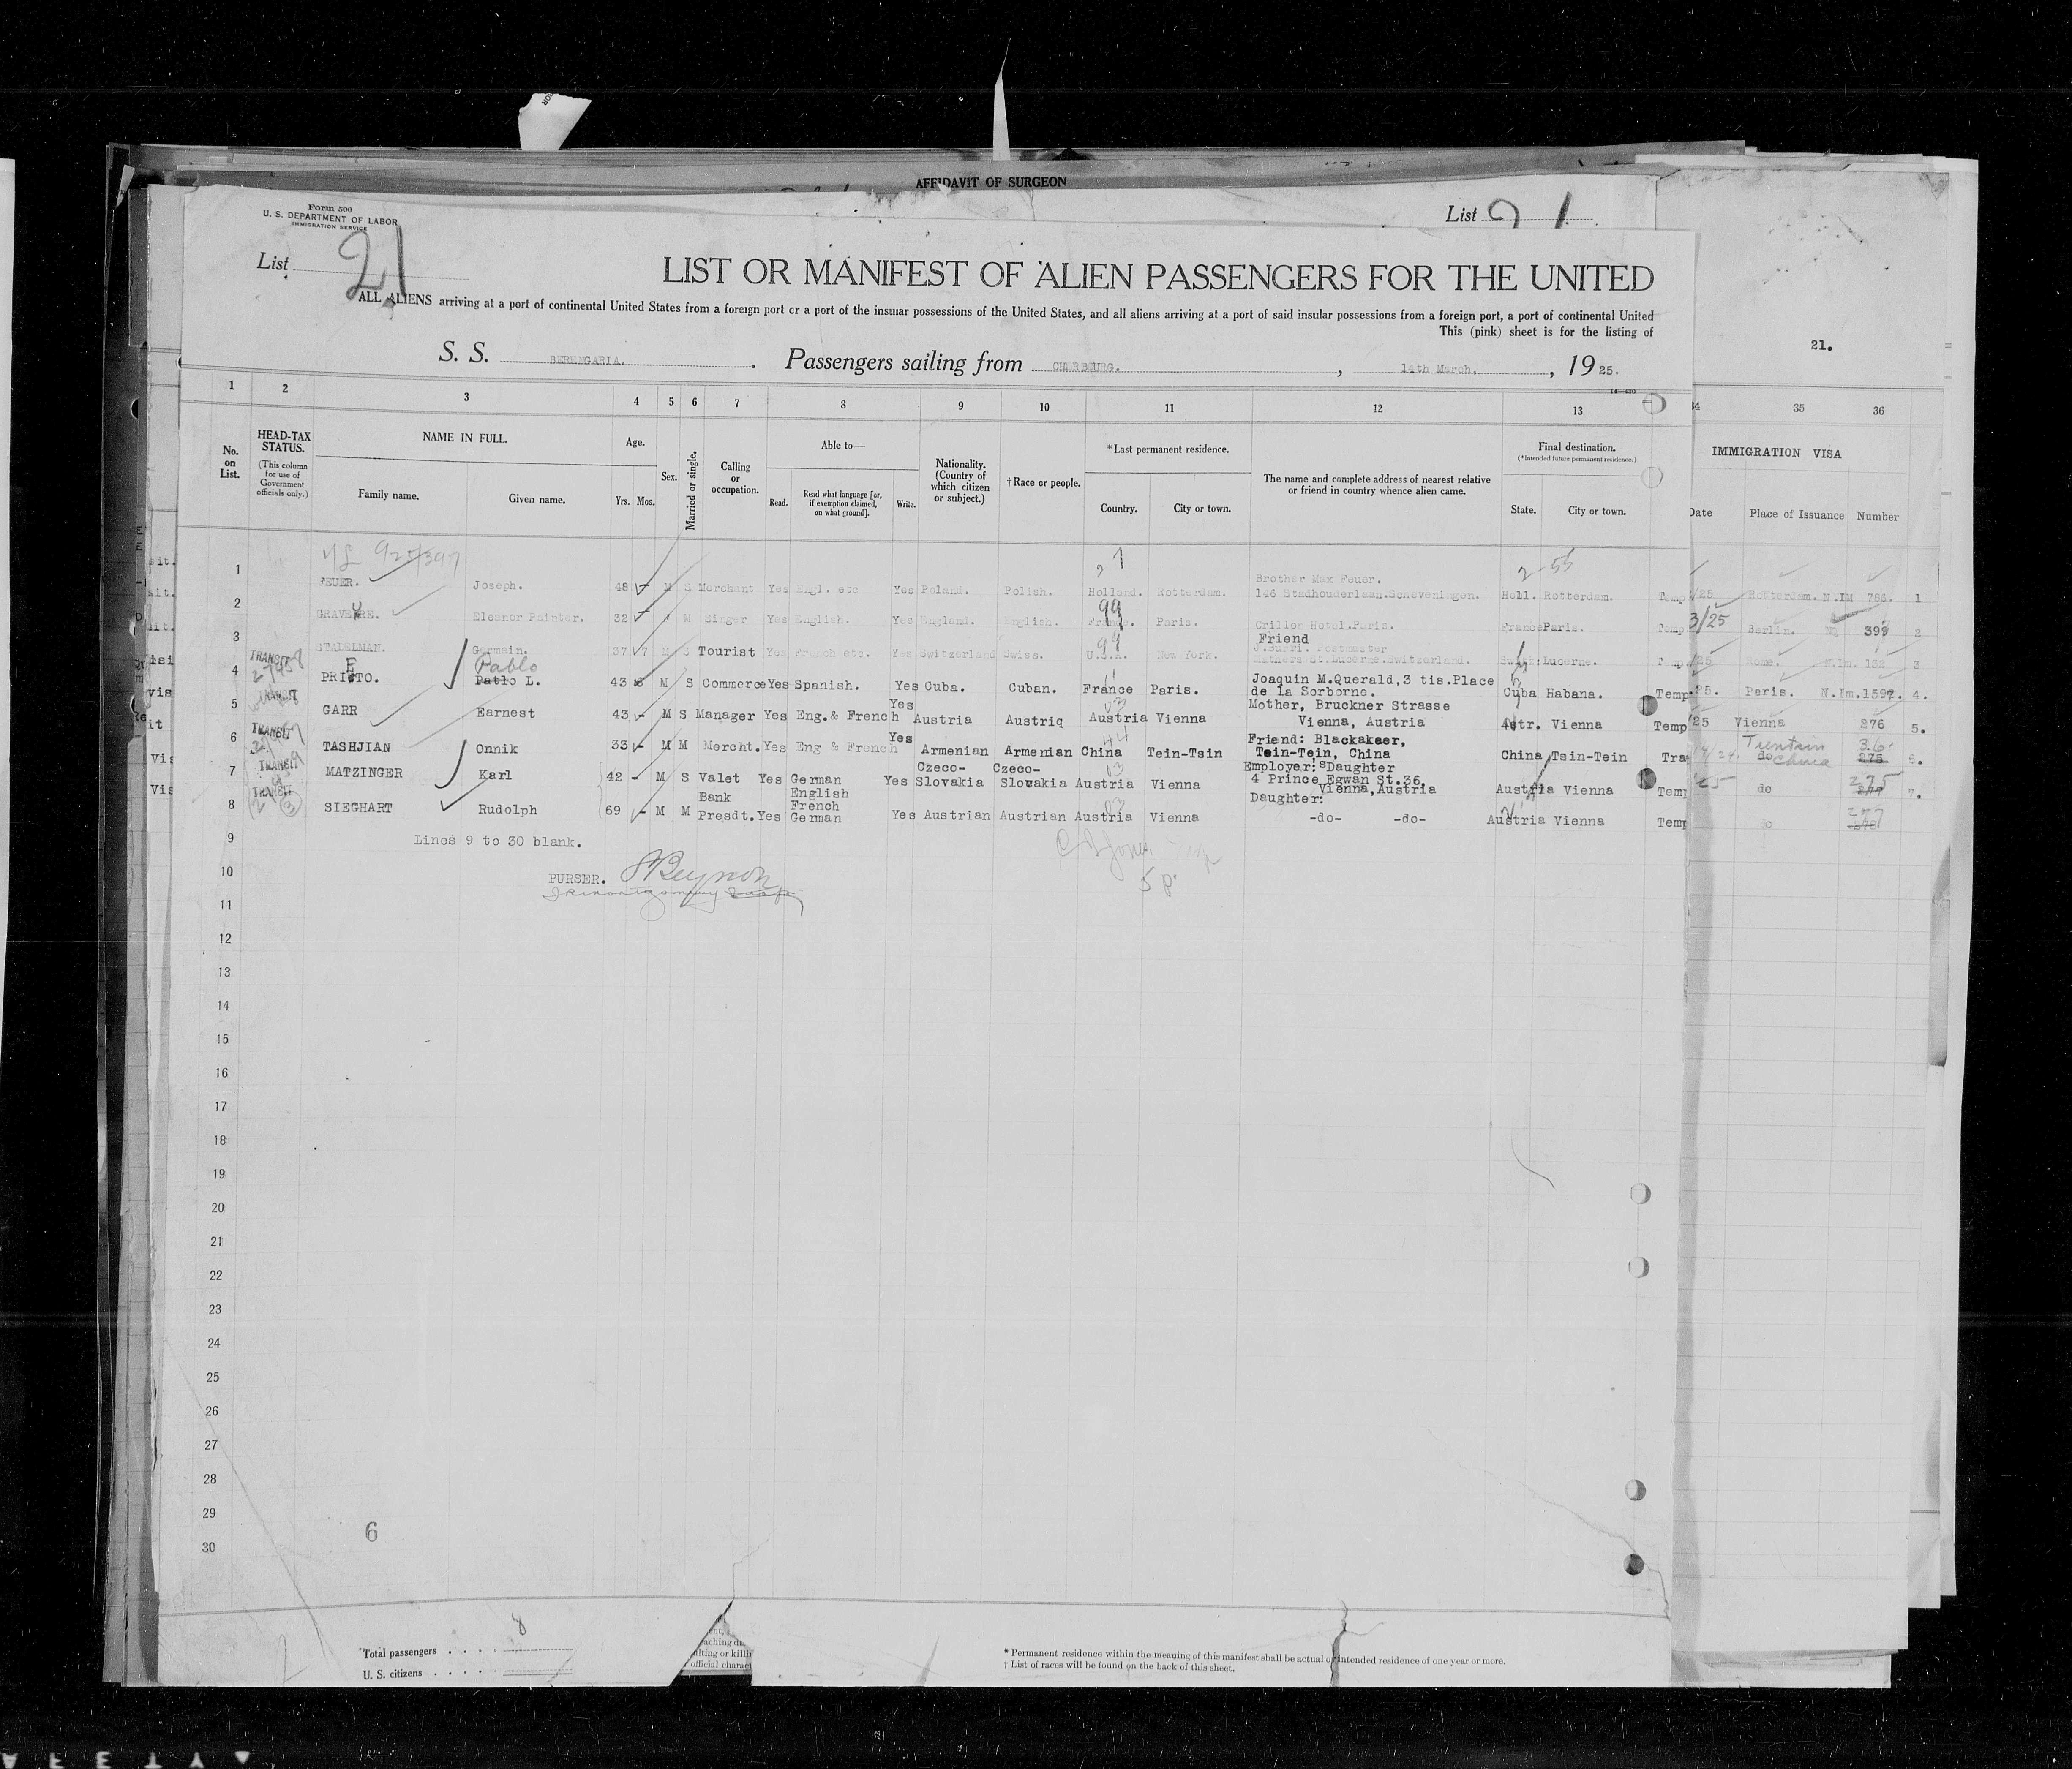 AFFIDAVIT OF SURGEON
Form 500
U. S. DEPARTMENT OF LABOR
IMMIGRATION SERVICE
List 21
List 21
LIST OR MANIFEST OF ALIEN PASSENGERS FOR THE UNITED
ALL ALIENS arriving at a port of continental United States from a foreign port or a port of the insular possessions of the United States, and all aliens arriving at a port of said insular possessions from a foreign port, a port of continental United
This (pink) sheet is for the listing of
21.
S. S. BERENGARIA. Passengers sailing from CHERBOURG. , 14th March, , 1925.
1 2 3 4 5 6 7 8 9 10 11 12 13 35 36
No. on List.
HEAD-TAX STATUS.
(This column for use of Government officials only.)
NAME IN FULL.
Family name. Given name.
Age.
Yrs. Mos.
Sex.
Married or single.
Calling or occupation.
Able to—
Read. Read what language [or, if exemption claimed, on what ground]. Write.
Nationality. (Country of which citizen or subject.)
†Race or people.
*Last permanent residence.
Country. City or town.
The name and complete address of nearest relative or friend in country whence alien came.
Final destination.
(*Intended future permanent residence.)
State. City or town.
IMMIGRATION VISA
Date Place of Issuance Number
1 FEUER. Joseph. 48 M S Merchant Yes Engl. etc Yes Poland. Polish. Holland. Rotterdam. Brother Max Feuer. 146 Stadhouderlaan.Scheveningen. Holl. Rotterdam. Temp /25 Rotterdam. N.IM 786. 1
2 Eleanor Painter. 32 M Singer Yes English. Yes England. English. France. Paris. Crillon Hotel.Paris. France Paris. Temp 3/25 Berlin. 399 2
3 STADELMAN. Germain. 37 7 M S Tourist Yes French etc. Yes Switzerland Swiss. U.S.A. New York. Friend Lucerne.Switzerland. Lucerne. /25 Rome. N.Im. 132 3
4 TRANSIT PRIETO. Pablo Pablo L. 43 M S Commerce Yes Spanish. Yes Cuba. Cuban. France Paris. Joaquin M.Querald,3 tis.Place de la Sorborne. Cuba Habana. Temp 25. Paris. N.Im.1597. 4.
5 TRANSIT GARR Earnest 43 - M S Manager Yes Eng.& French Yes Austria Austriq Austria Vienna Mother, Bruckner Strasse Vienna, Austria Astr. Vienna Temp 25 Vienna 276 5.
6 TRANSIT TASHJIAN Onnik 33 - M M Mercht. Yes Eng & French Yes Armenian Armenian China Tein-Tsin Friend: Blackakaer, Tein-Tein, China China Tsin-Tein Tra do China 6.
7 TRANSIT MATZINGER Karl 42 - M S Valet Yes German Yes Czeco-Slovakia Czeco-Slovakia Austria Vienna Employer:sDaughter 4 Prince Egwan St.36, Vienna,Austria Austria Vienna Temp 25 do 275 7.
8 TRANSIT SIEGHART Rudolph 69 - M M Bank Presdt. Yes English French German Yes Austrian Austrian Austria Vienna Daughter: -do- -do- Austria Vienna Temp
9 Lines 9 to 30 blank.
10 PURSER.
11
12
13
14
15
16
17
18
19
20
21
22
23
24
25
26
27
28
29
30
6
Total passengers . . . . 8
U. S. citizens . . . . .
* Permanent residence within the meaning of this manifest shall be actual or intended residence of one year or more.
† List of races will be found on the back of this sheet.